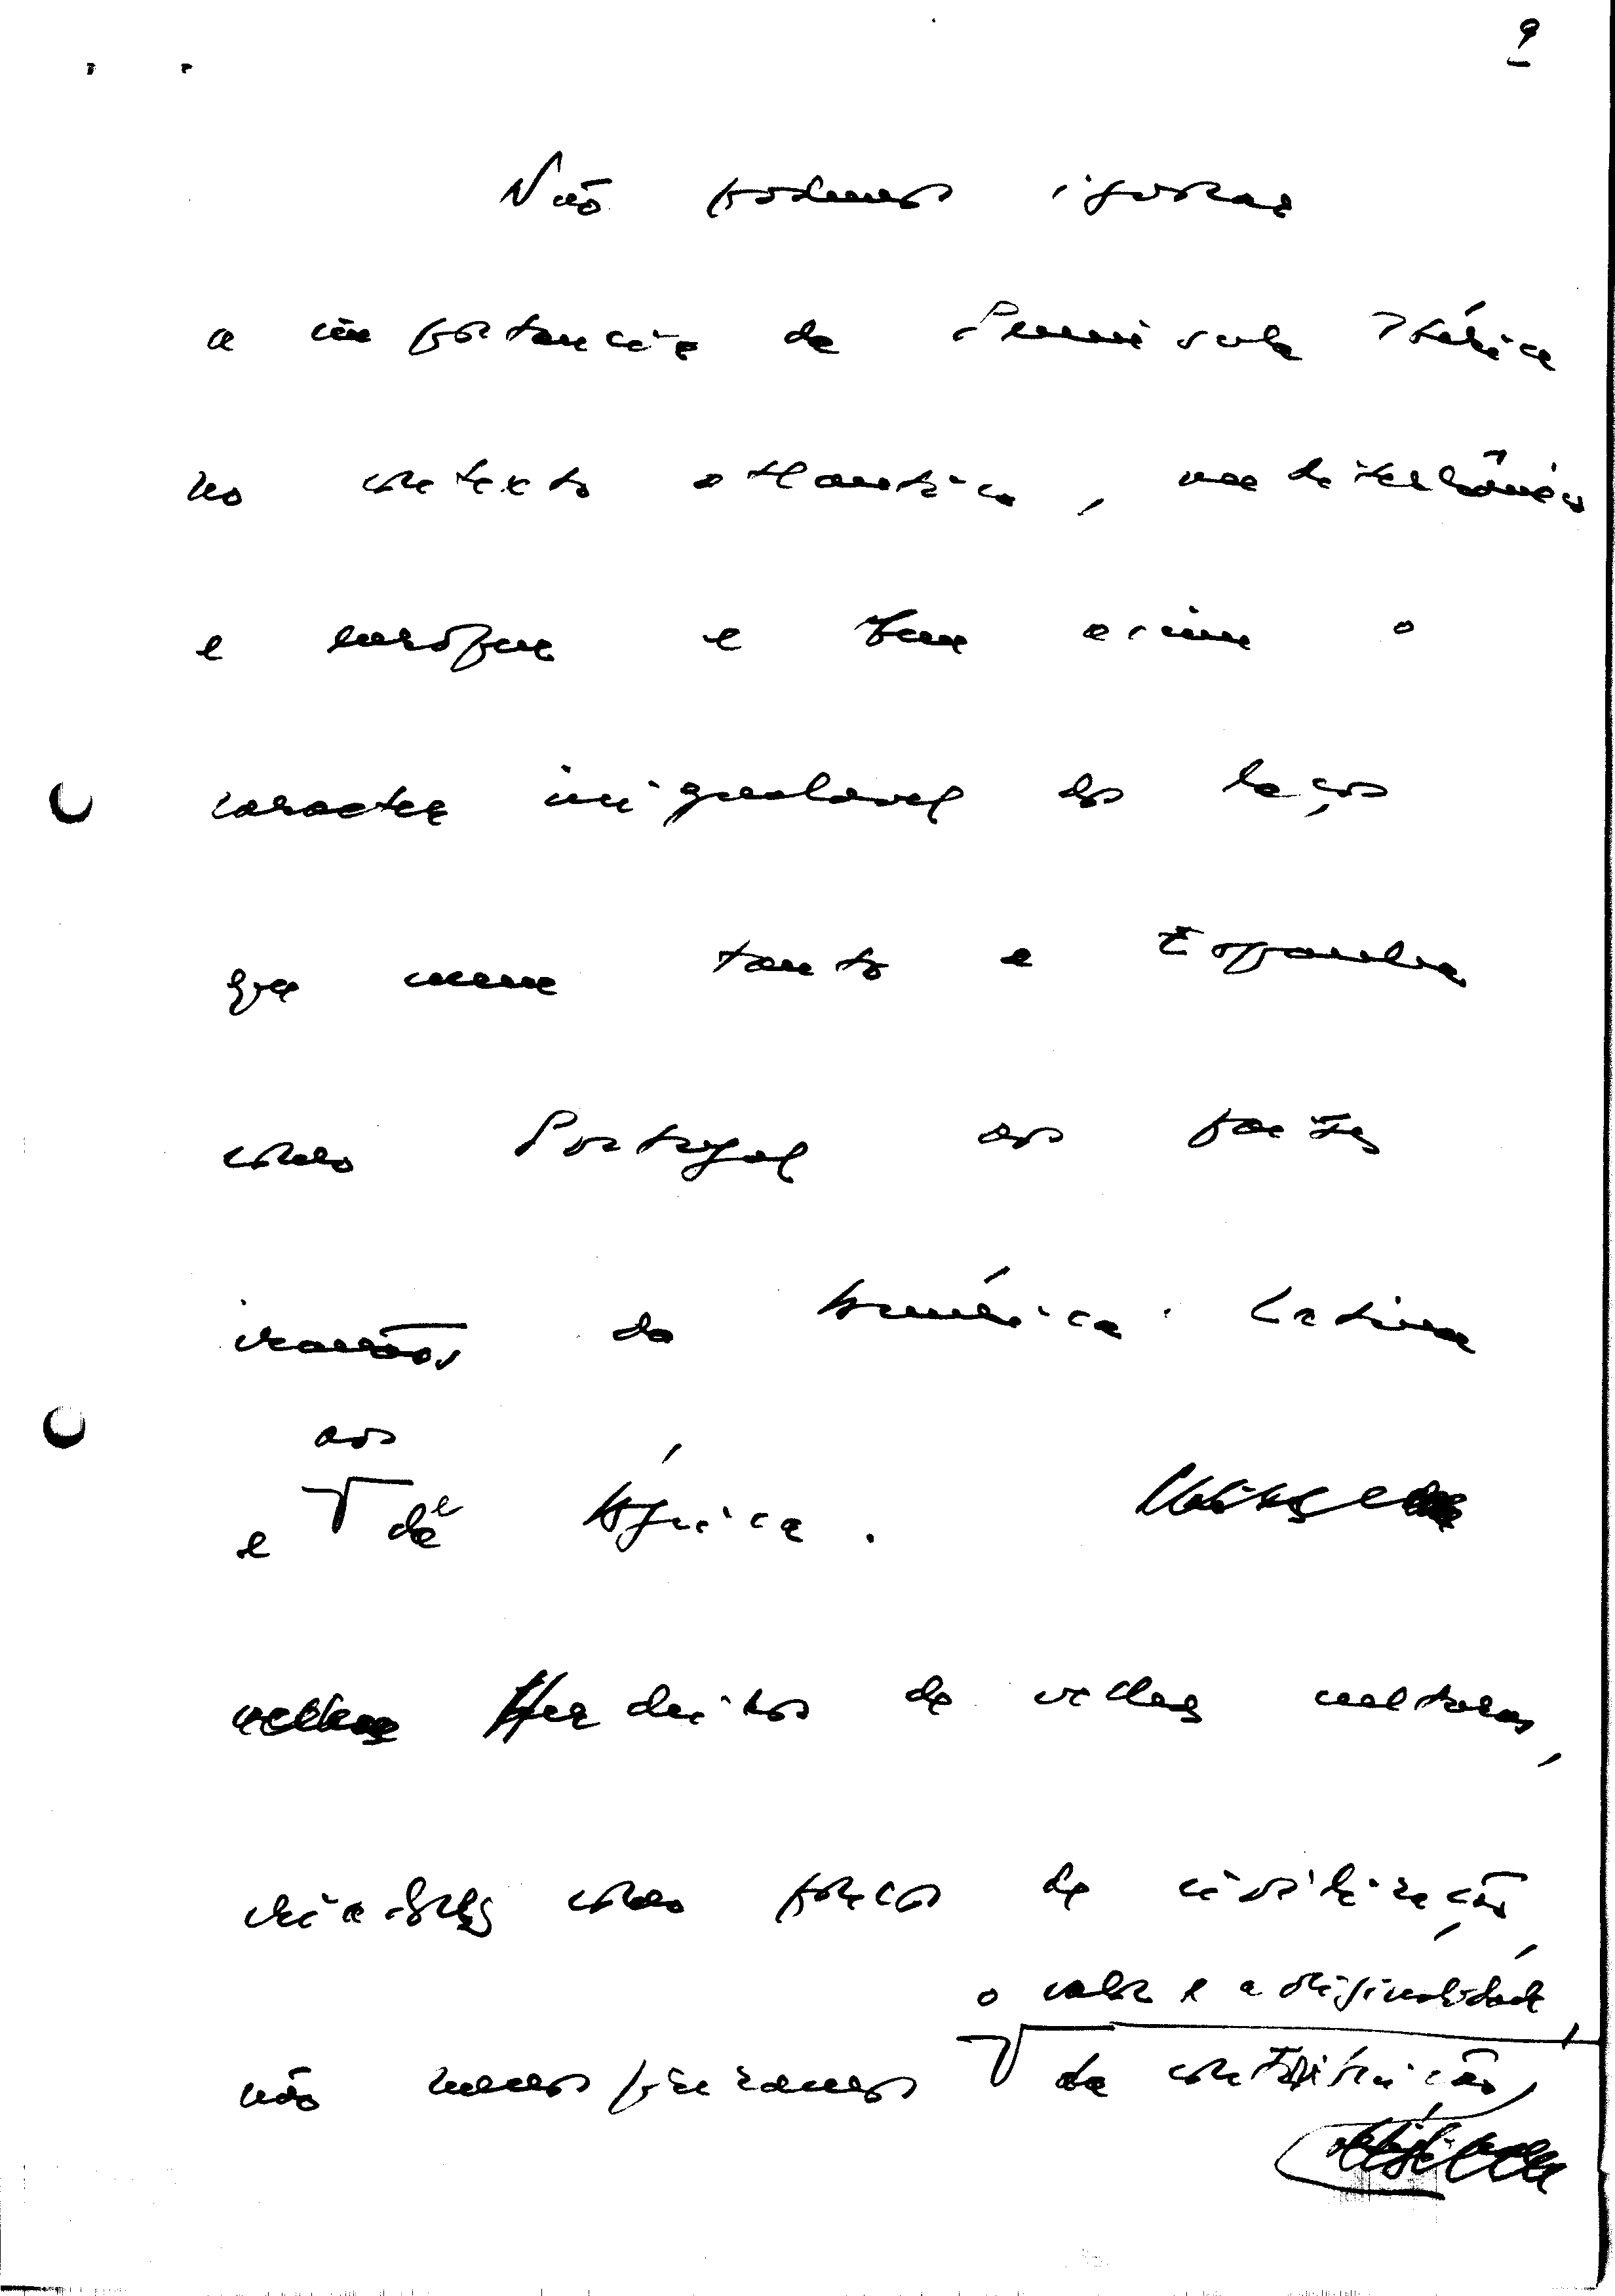 9
Não podemos ignorar
a importancia da Peninsula Ibérica
no contexto atlantico, mediterrânico
e europeu e bem assim o
caracter inigualavel dos laços
que unem tanto a Espanha
como Portugal aos países
irmãos da América Latina
aos
e de África.
Herdeiros de velhas culturas,
como focos de civilização,
o valor e a originalidade,
não menosprezamos da contribuição